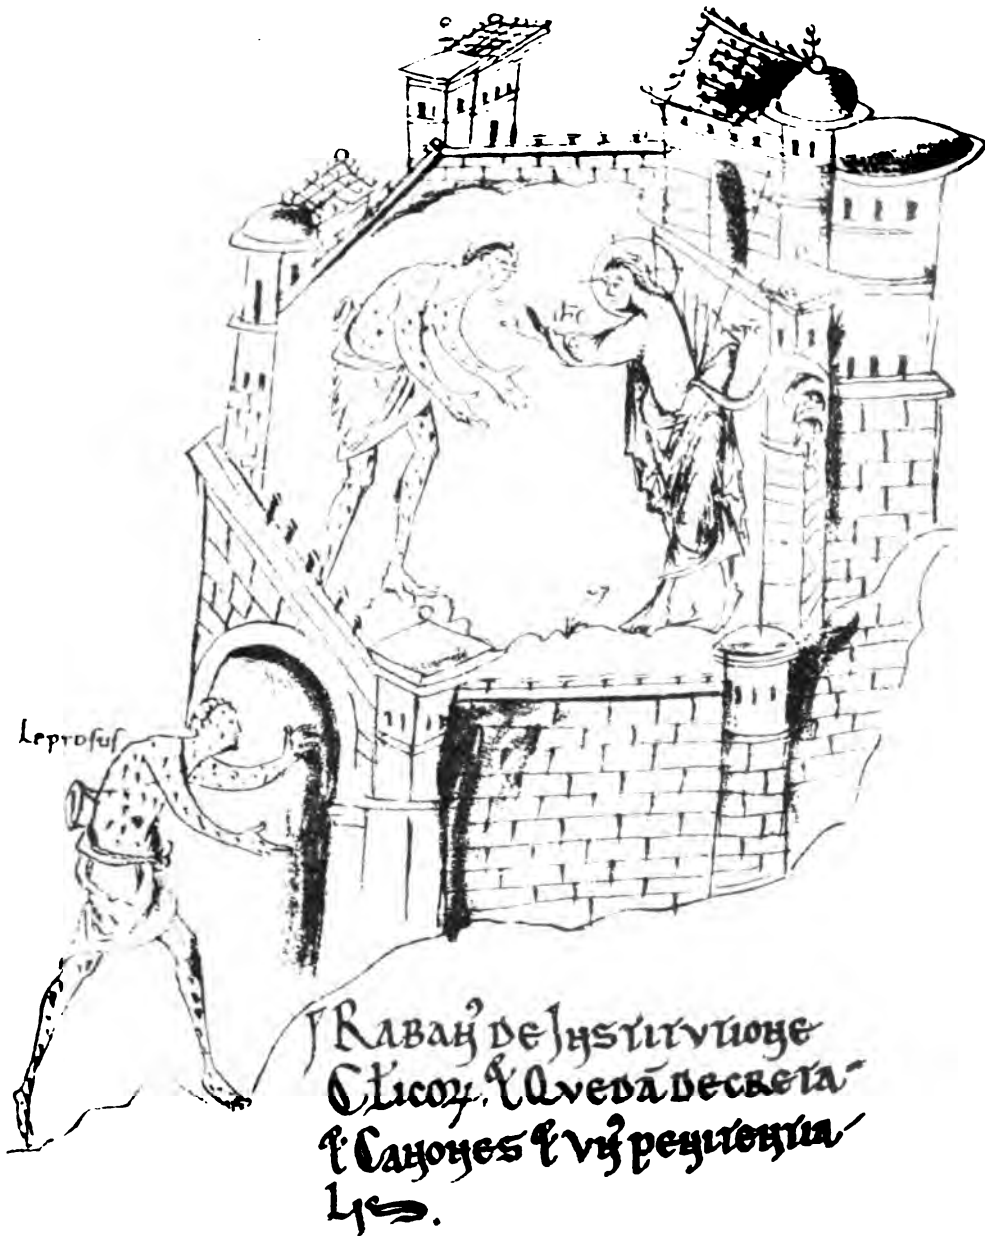 ihc xpc
leprosus
Raban' de Institutione
Cl̄icoꝝ. ⁊ Quedā decreta
⁊ Canones ⁊ un' penitentia
lis.